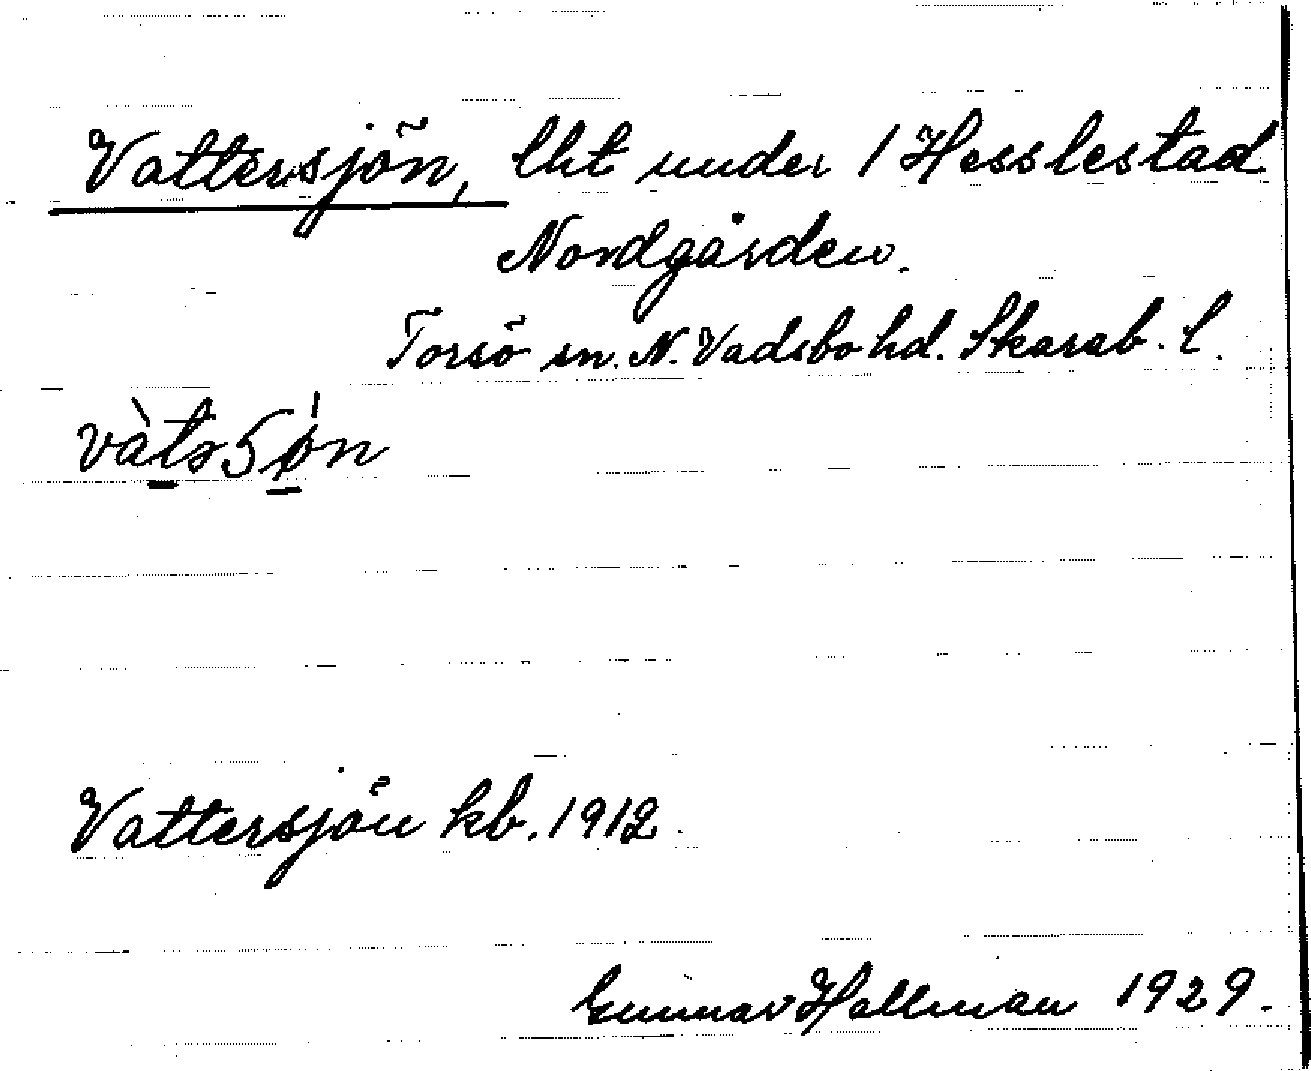 Vattersjön, lht under 1 Hesslestad
Nordgården.
Torsö sn. N. Vadsbo hd. Skarab. l.
Vattersjön kb. 1912.
Gunnar Hallman 1929.